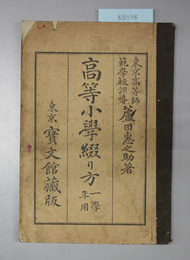 65996
東京高等師
範學校訓導 蘆田惠之助著
高等小學綴り方 一學
年用
東京 寶文館藏版